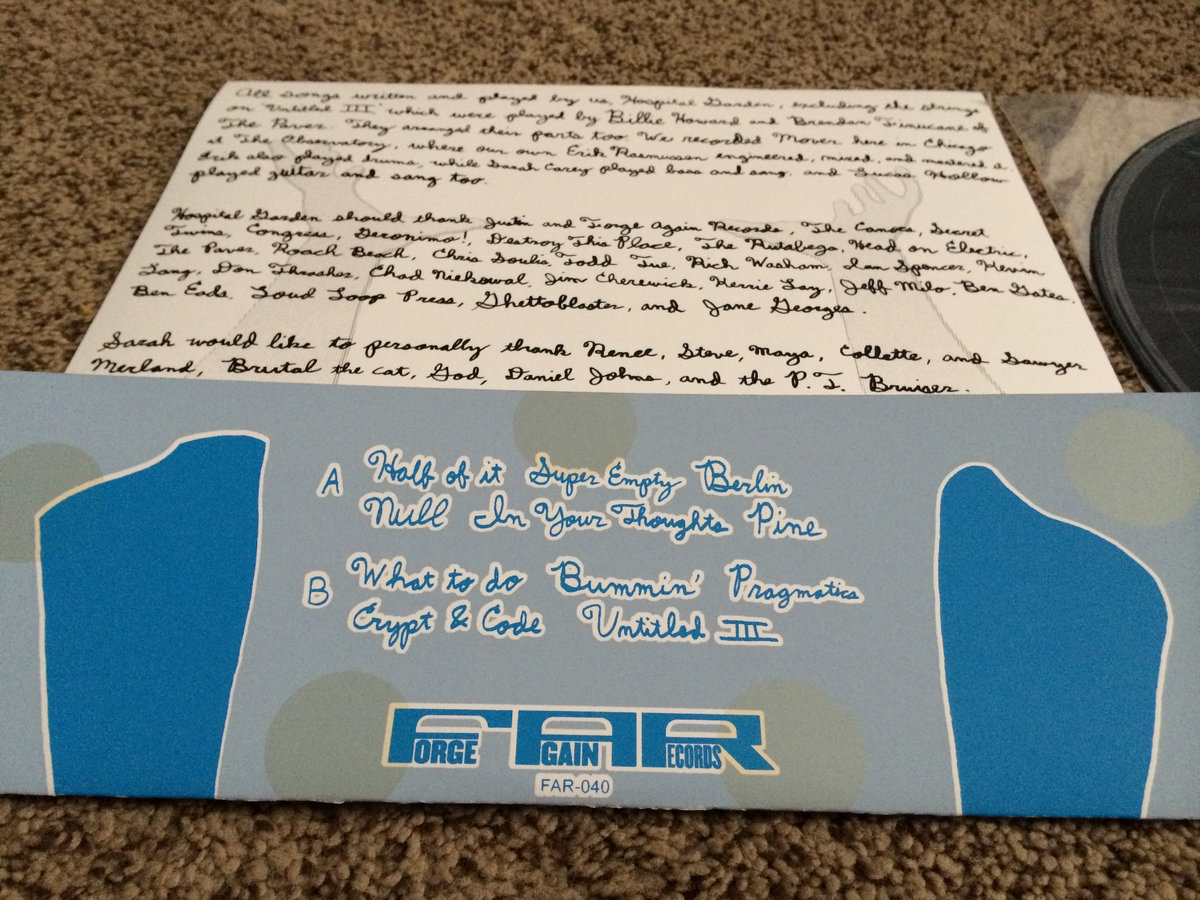 All songs written and played by us, Hospital Garden, excluding the strings
on "Untitled III" which were played by Billie Howard and Brendan Finucane of
The Paver. They arranged their parts too. We recorded Mover here in Chicago
at The Observatory, where our own Erik Rasmussen engineered, mixed, and mastered it.
Erik also played drums, while Sarah Carey played bass and sang. and Lucas Hollow
played guitar and sang too.
Hospital Garden should thank Justin and Forge Again Records, The Canoes, Secret
Twins, Congress, Geronimo!, Destroy This Place, The Rutabega, Head on Electric,
The Paver, Roach Beach, Chris Soulis, Todd Tue, Rich Washam, Ian Spencer, Kevin
Lang, Don Thrasher, Chad Niekowal, Jim Cherewick, Kerrie Lay, Jeff Milo, Ben Gates,
Ben Eads, Loud Loop Press, Ghettoblaster, and Jane Georges.
Sarah would like to personally thank Renee, Steve, Maya, Collette, and Sawyer
Merland, Brutal the cat, God, Daniel Johns, and the P.T. Bruiser.
A Half of it Super Empty Berlin
Null In Your Thoughts Pine
B What to do Bummin' Pragmatics
Crypt & Code Untitled III
FORGE AGAIN RECORDS
FAR-040